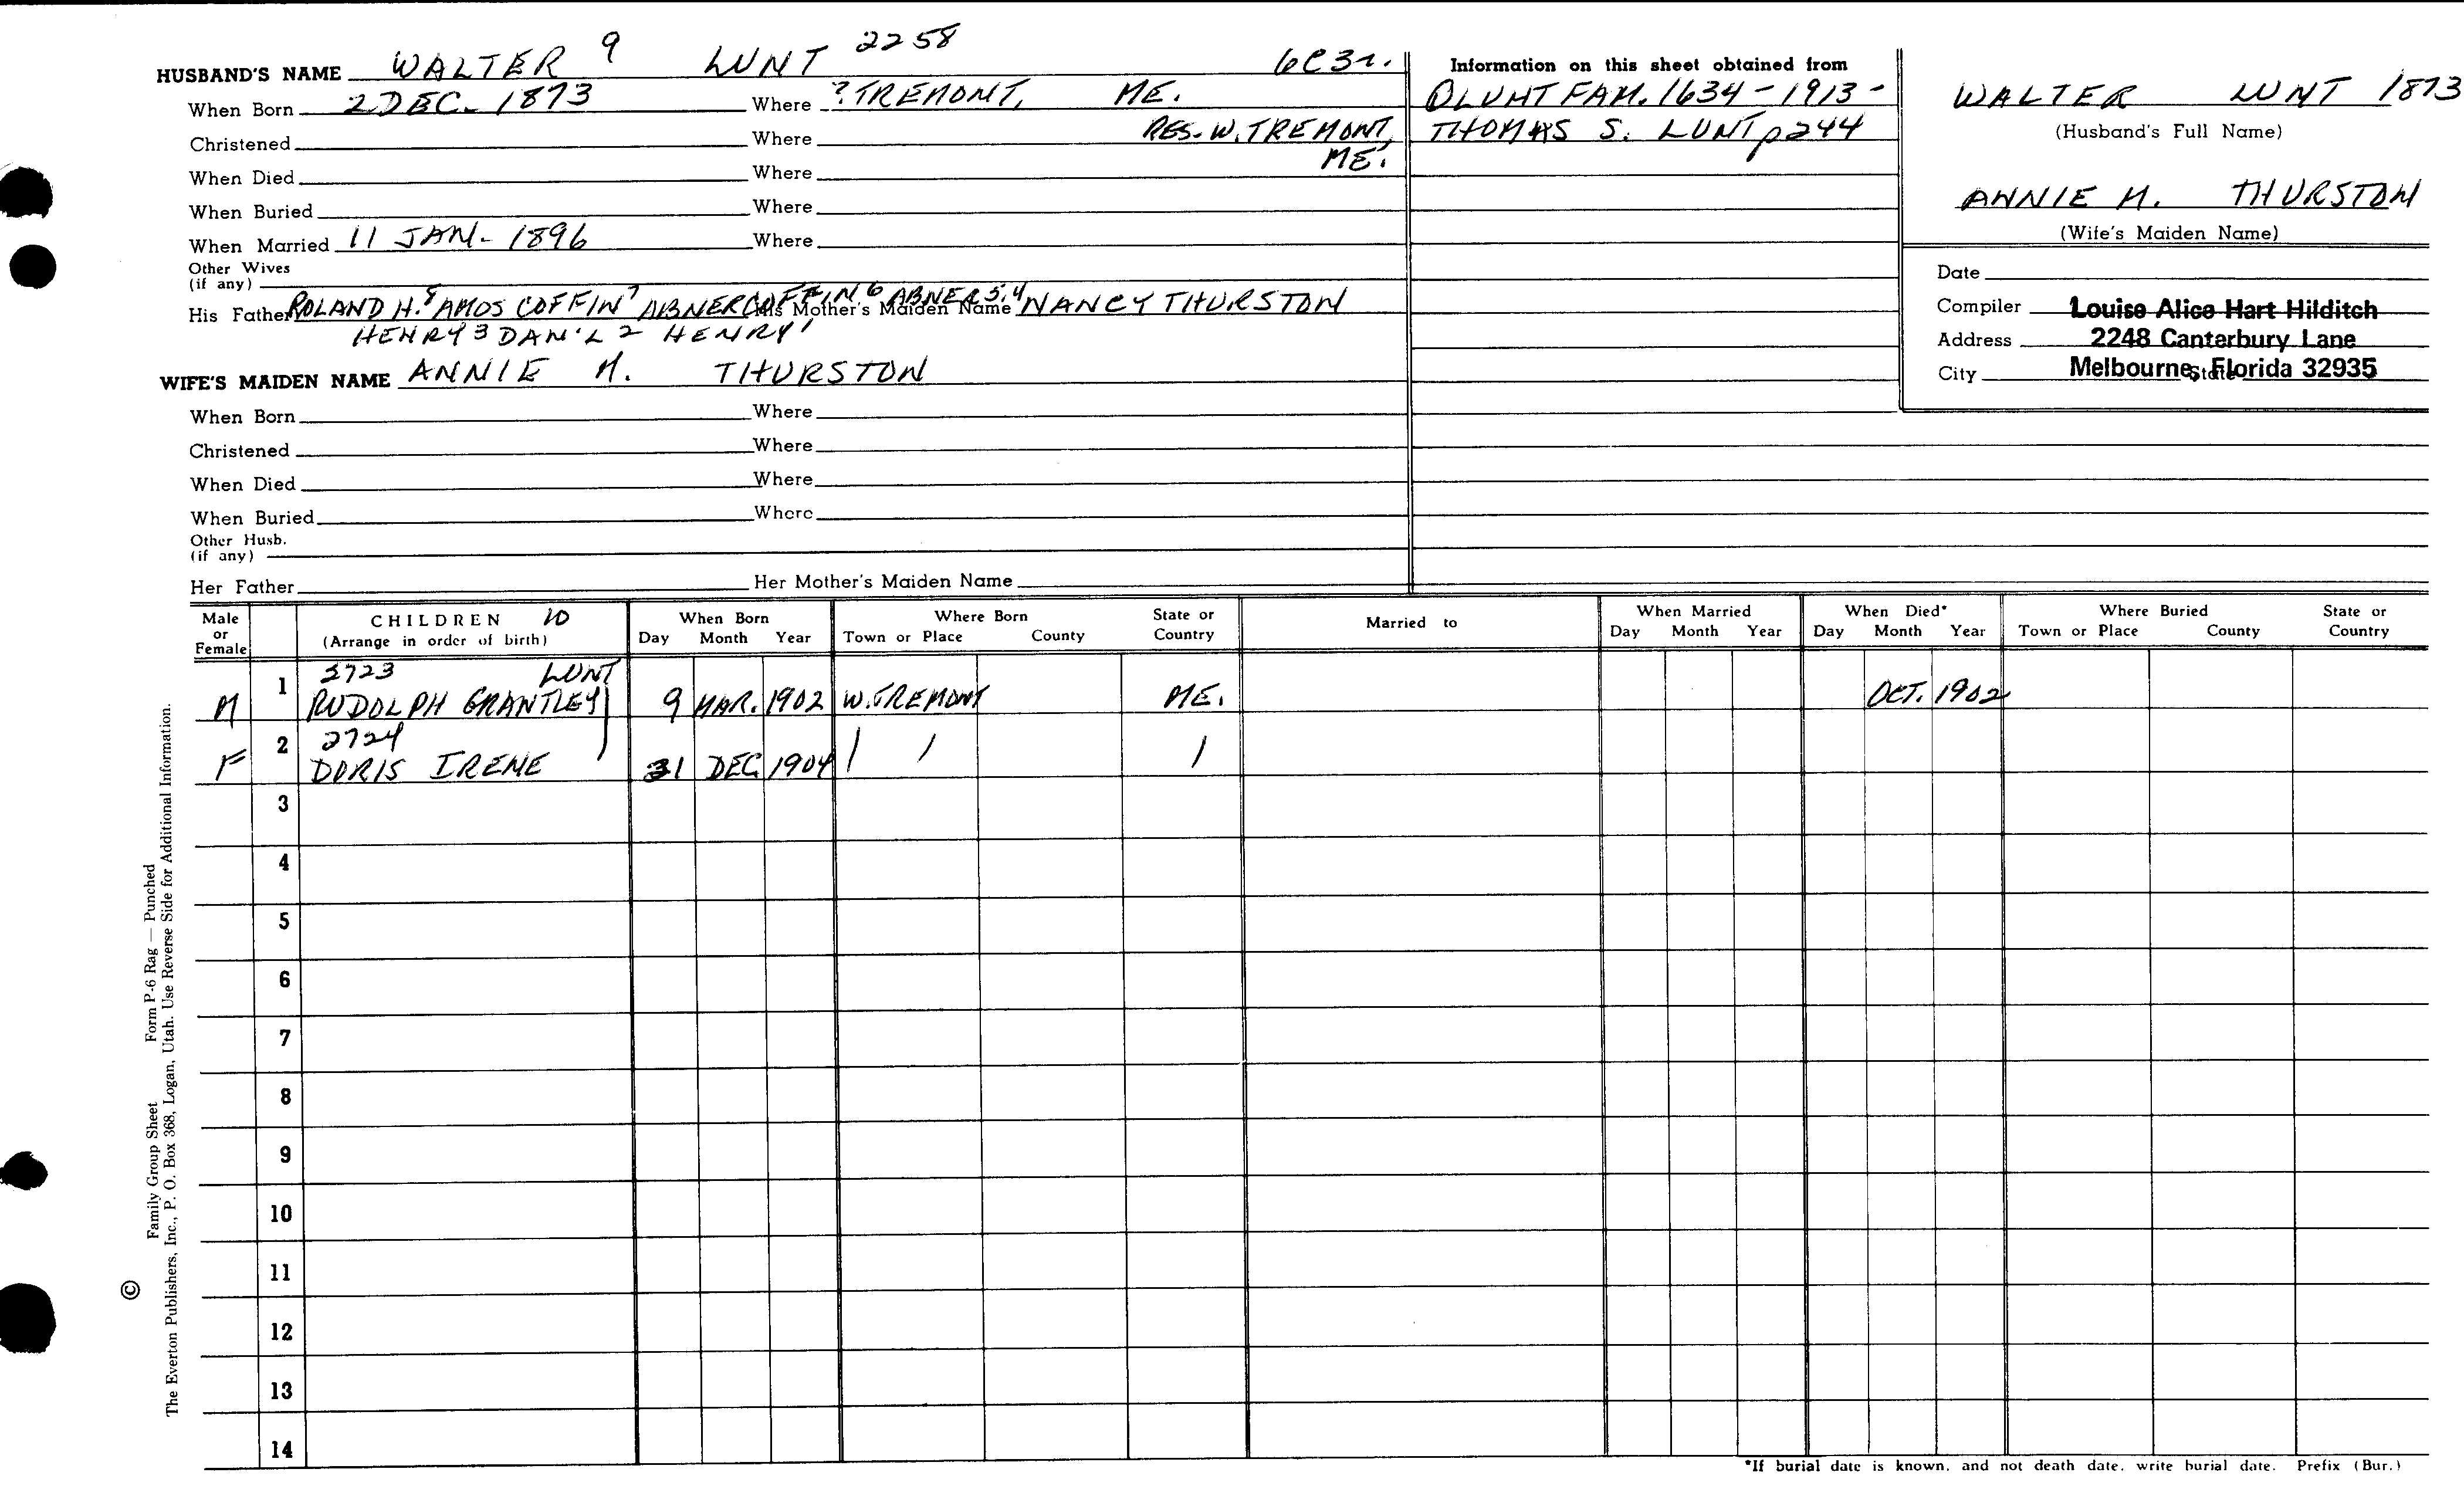 HUSBAND'S NAME WALTER 9 LUNT 2258 6C3r.
When Born 2 DEC. 1873 Where ? TREMONT, ME.
Christened Where RES. W. TREMONT, ME.
When Died Where
When Buried Where
When Married 11 JAN. 1896 Where
Other Wives
(if any)
His Father ROLAND H.8 AMOS COFFIN7 ABNER COFFIN6 ABNER 5,4 His Mother's Maiden Name NANCY THURSTON
HENRY 3 DAN'L 2 HENRY 1
WIFE'S MAIDEN NAME ANNIE M. THURSTON
When Born Where
Christened Where
When Died Where
When Buried Where
Other Husb.
(if any)
Her Father Her Mother's Maiden Name
Information on this sheet obtained from
LUNT FAM. 1634-1913-
THOMAS S. LUNT p244
WALTER LUNT 1873
(Husband's Full Name)
ANNIE M. THURSTON
(Wife's Maiden Name)
Date
Compiler Louise Alice Hart Hilditch
Address 2248 Canterbury Lane
City Melbourne, Florida 32935 State
Male or Female CHILDREN 10 (Arrange in order of birth) When Born Day Month Year Where Born Town or Place County State or Country Married to When Married Day Month Year When Died* Day Month Year Where Buried Town or Place County State or Country
1 2723 LUNT
M RUDOLPH GRANTLEY 9 MAR. 1902 W. TREMONT ME. OCT. 1902
2 2724
F DORIS IRENE 31 DEC 1904 | | |
3
4
5
6
7
8
9
10
11
12
13
14
*If burial date is known, and not death date, write burial date. Prefix (Bur.)
© Family Group Sheet Form P-6 Rag — Punched
The Everton Publishers, Inc., P. O. Box 368, Logan, Utah. Use Reverse Side for Additional Information.